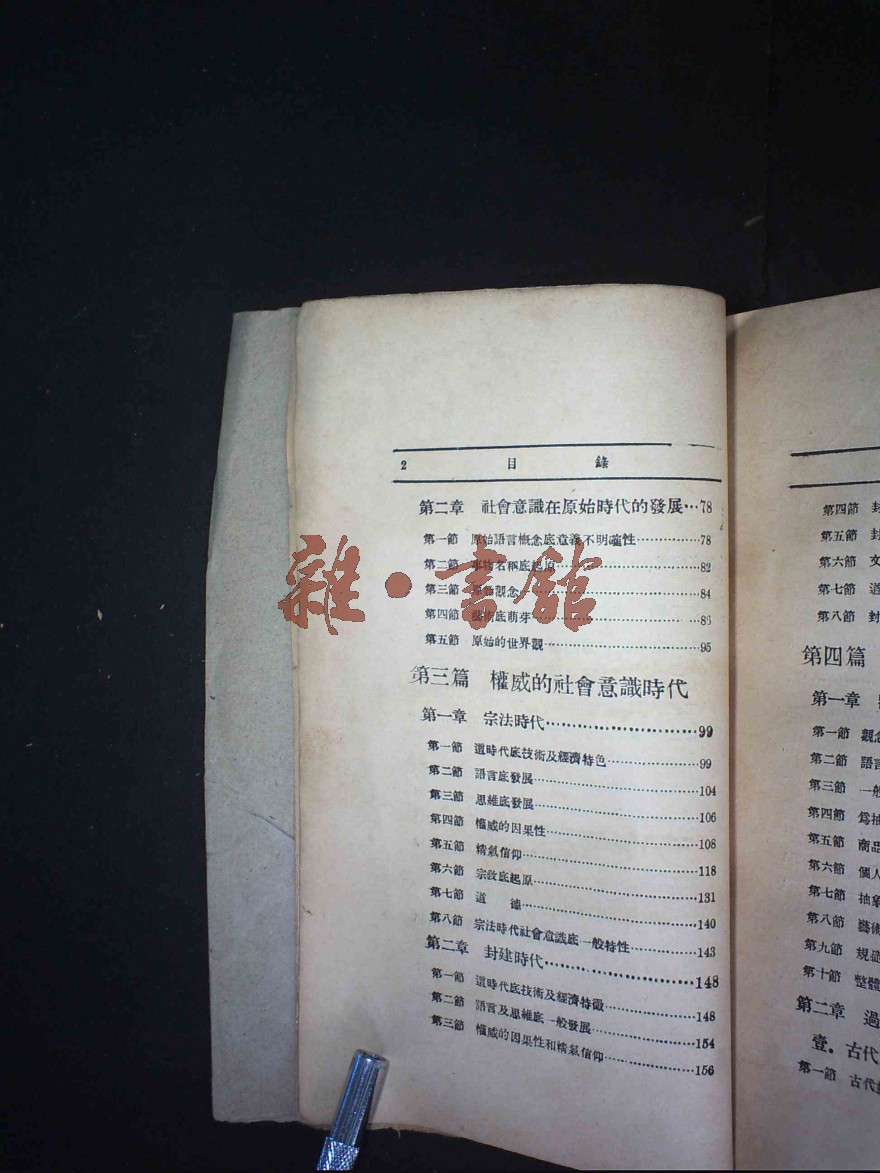 2 目錄
第二章 社會意識在原始時代的發展…78
第一節 原始語言概念底意義不明確性…………78
第二節 事物名稱底起原…………82
第三節 原始觀念…………84
第四節 藝術底萌芽…………86
第五節 原始的世界觀…………95
第三篇 權威的社會意識時代
第一章 宗法時代…………99
第一節 這時代底技術及經濟特色…………99
第二節 語言底發展…………104
第三節 思維底發展…………106
第四節 權威的因果性…………108
第五節 精氣信仰…………118
第六節 宗敎底起原…………131
第七節 道德…………140
第八節 宗法時代社會意識底一般特性…………143
第二章 封建時代…………148
第一節 這時代底技術及經濟特徵…………148
第二節 語言及思維底一般發展…………154
第三節 權威的因果性和精氣信仰…………156
第四節 封
第五節 封
第六節 文
第七節 道
第八節 封
第四篇
第一章
第一節 觀念
第二節 語言
第三節 一般
第四節 爲抽
第五節 商品
第六節 個人
第七節 抽象
第八節 藝術
第九節 規範
第十節 整體
第二章 過
壹．古代
第一節 古代
雜·書館